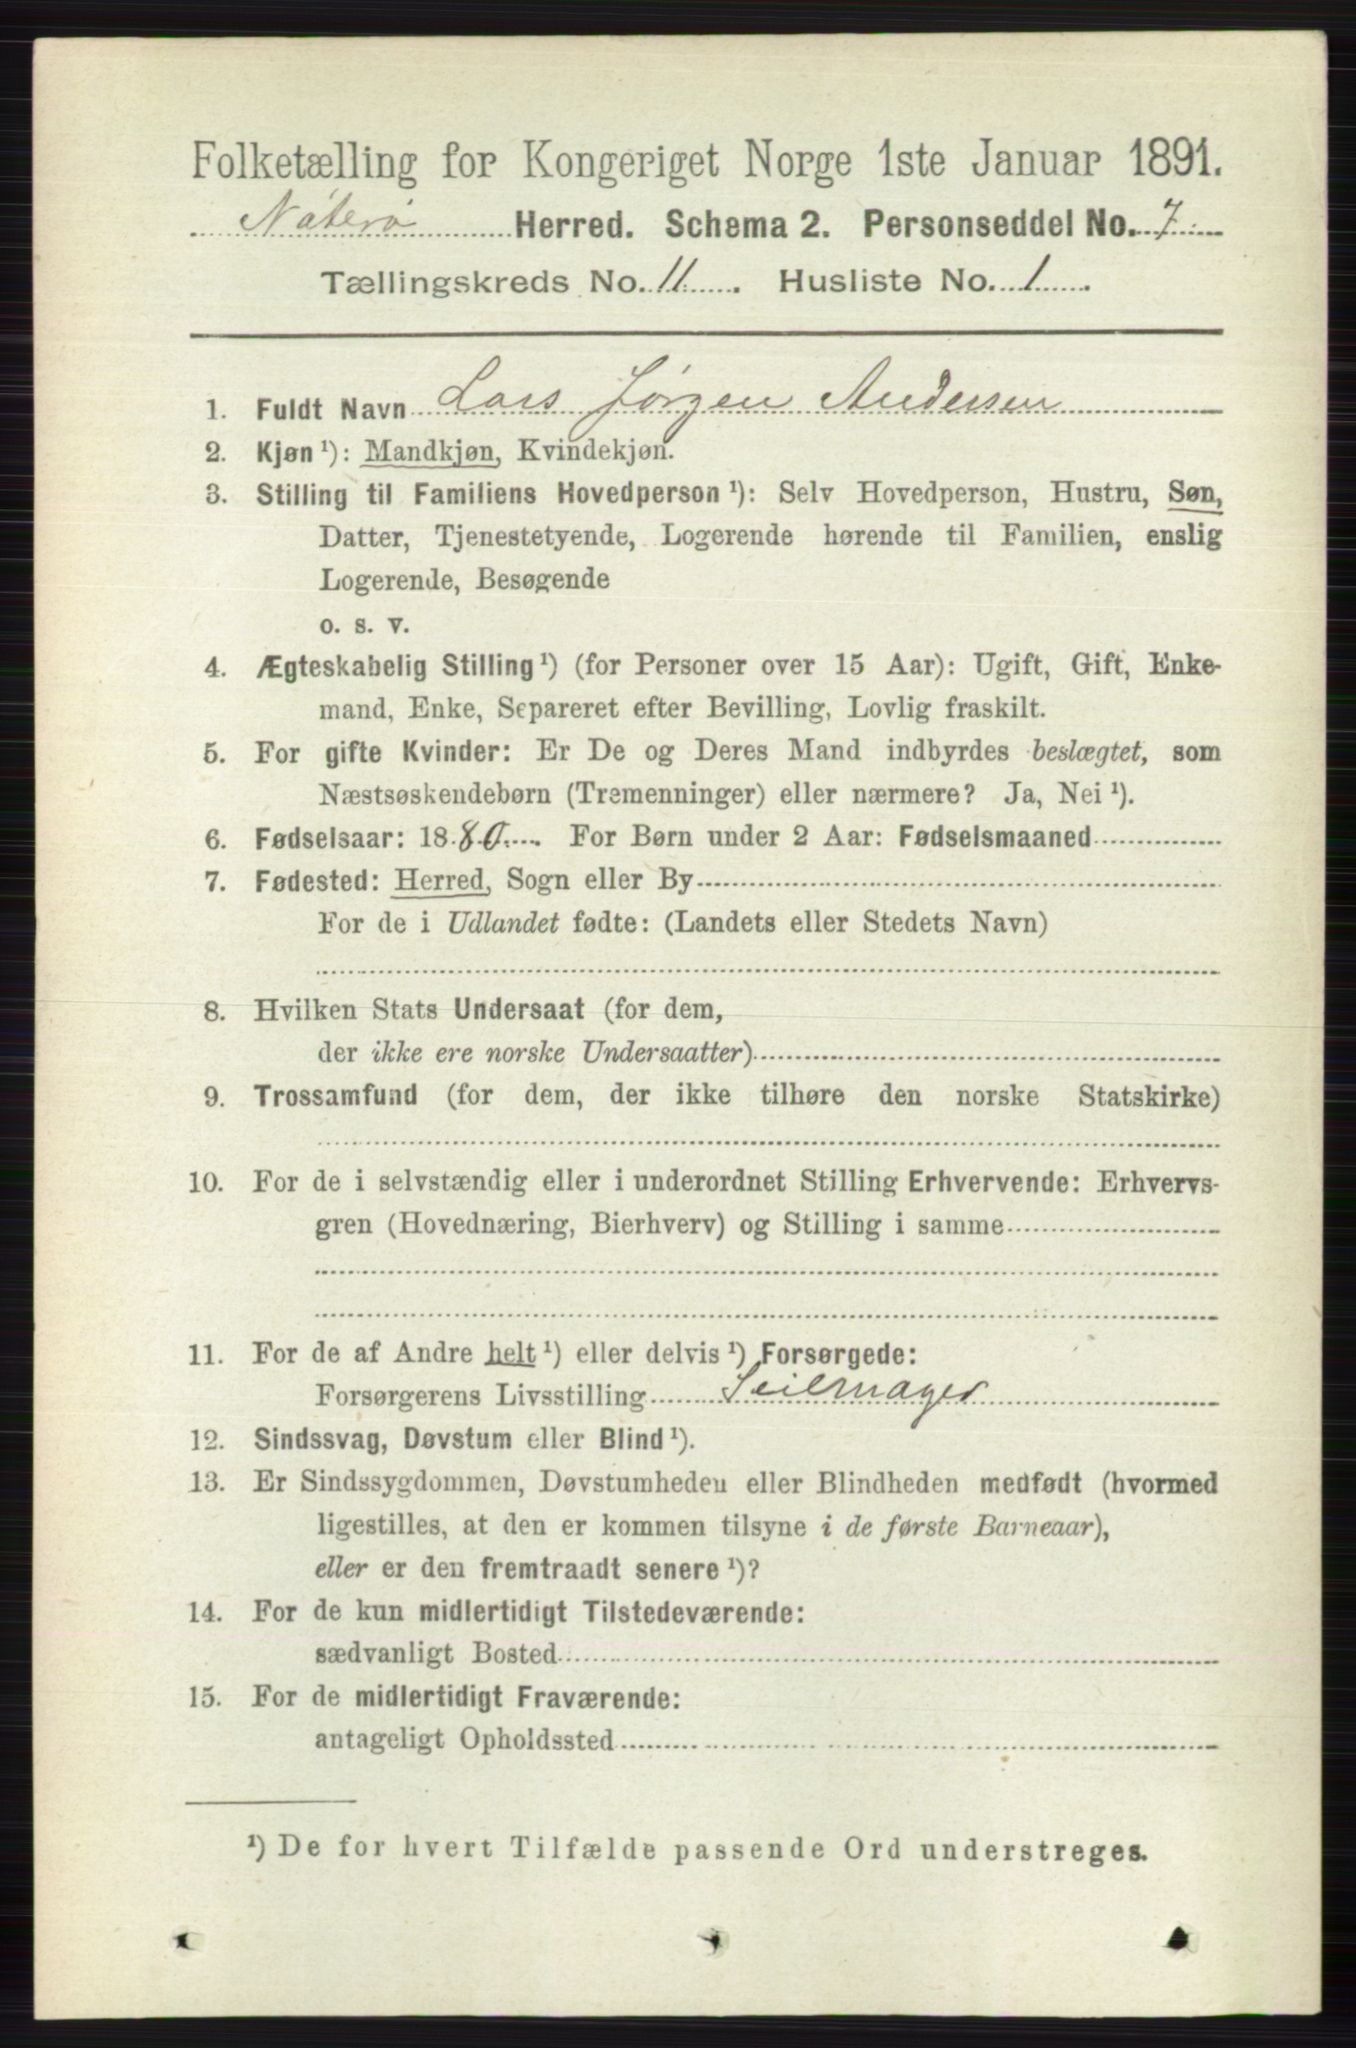 Folketælling for Kongeriget Norge 1ste Januar 1891.
Nøterø Herred. Schema 2. Personseddel No. 7
Tællingskreds No. 11. Husliste No. 1.
1. Fuldt Navn Lars Jørgen Andersen
2. Kjøn ¹): Mandkjøn, Kvindekjøn.
3. Stilling til Familiens Hovedperson ¹): Selv Hovedperson, Hustru, Søn,
Datter, Tjenestetyende, Logerende hørende til Familien, enslig
Logerende, Besøgende
o. s. v.
4. Ægteskabelig Stilling ¹) (for Personer over 15 Aar): Ugift, Gift, Enke-
mand, Enke, Separeret efter Bevilling, Lovlig fraskilt.
5. For gifte Kvinder: Er De og Deres Mand indbyrdes beslægtet, som
Næstsøskendebørn (Tremenninger) eller nærmere? Ja, Nei ¹).
6. Fødselsaar: 1880. For Børn under 2 Aar: Fødselsmaaned
7. Fødested: Herred, Sogn eller By
For de i Udlandet fødte: (Landets eller Stedets Navn)
8. Hvilken Stats Undersaat (for dem,
der ikke ere norske Undersaatter)
9. Trossamfund (for dem, der ikke tilhøre den norske Statskirke)
10. For de i selvstændig eller i underordnet Stilling Erhvervende: Erhvervs-
gren (Hovednæring, Bierhverv) og Stilling i samme
11. For de af Andre helt ¹) eller delvis ¹) Forsørgede:
Forsørgerens Livsstilling Seilmager
12. Sindssvag, Døvstum eller Blind ¹).
13. Er Sindssygdommen, Døvstumheden eller Blindheden medfødt (hvormed
ligestilles, at den er kommen tilsyne i de første Barneaar),
eller er den fremtraadt senere ¹)?
14. For de kun midlertidigt Tilstedeværende:
sædvanligt Bosted
15. For de midlertidigt Fraværende:
antageligt Opholdssted
¹) De for hvert Tilfælde passende Ord understreges.